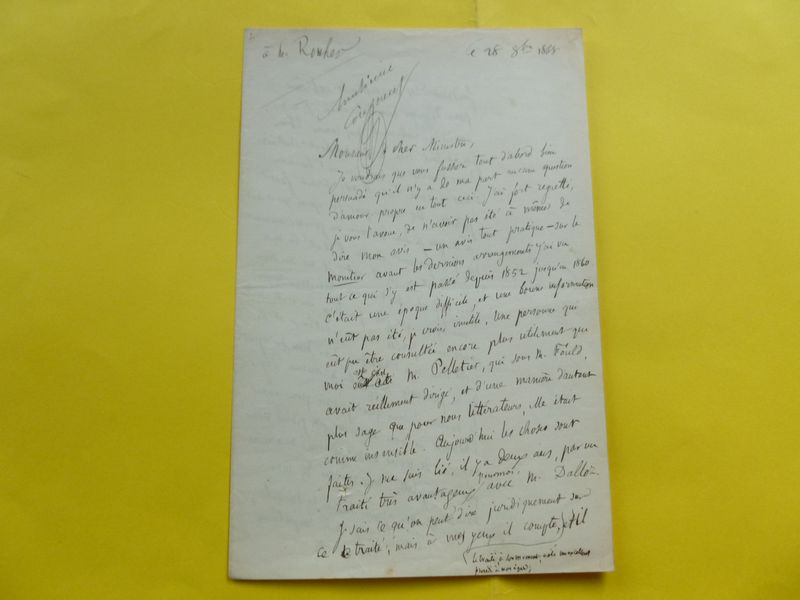 à M. Rouher
le 28 8bre 1868
Monsieur & cher Ministre,
Je voudrais que vous fussiez tout d'abord bien
persuadé qu'il n'y a de ma part aucune question
d'amour propre en tout ceci. J'ai fort regretté,
je vous l'avoue, de n'avoir pas été à même de
dire mon avis – un avis tout pratique – sur le
Moniteur avant les derniers arrangements. J'ai vu
tout ce qui s'y est passé depuis 1852 jusqu'en 1860
c'était une époque difficile, et une bonne information
n'eût pas été, je crois, inutile. Une personne qui
eût pu être consultée encore plus utilement que
moi eût été M. Pelletier, qui sous M. Fould,
avait réellement dirigé, et d'une manière d'autant
plus sage que pour nous littérateurs, elle était
comme insensible. Aujourd'hui les choses sont
faites. Je me suis lié, il y a deux ans, par un
traité très avantageux pour moi avec M. Dalloz.
Je sais ce qu'on peut dire juridiquement sur
ce traité; mais à mes yeux il compte, et il
le traité à son